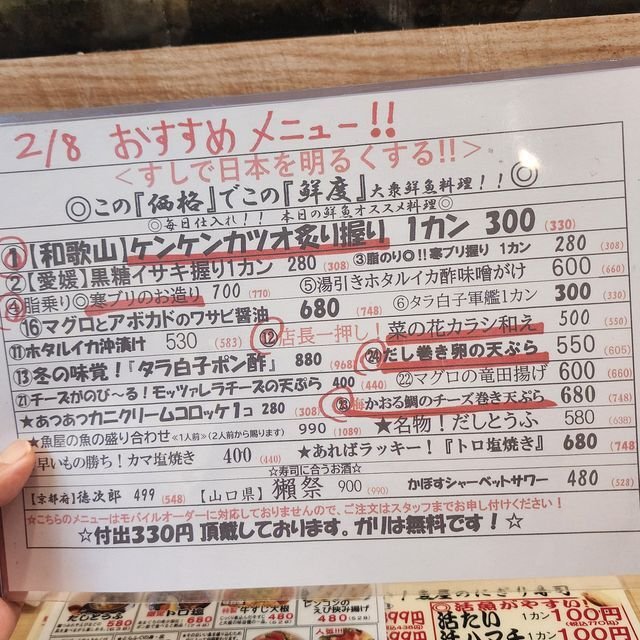 2/8 おすすめメニュー!!
<すしで日本を明るくする!!>
◎この『価格』でこの『鮮度』大衆鮮魚料理!!◎
◎毎日仕入れ!! 本日の鮮魚オススメ料理◎
①【和歌山】ケンケンカツオ炙り握り 1カン 300 (330)
②【愛媛】黒糖イサキ握り1カン 280 (308) ③脂のり◎!!寒ブリ握り 1カン 280 (308)
④脂乗り◎寒ブリのお造り 700 (770) ⑤湯引きホタルイカ酢味噌がけ 600 (660)
⑯マグロとアボカドのワサビ醤油 680 (748) ⑥タラ白子軍艦1カン 300 (330)
⑪ホタルイカ沖漬け 530 (583) ⑫店長一押し!菜の花カラシ和え 500 (550)
⑬冬の味覚!『タラ白子ポン酢』 880 (968) ㉔だし巻き卵の天ぷら 550 (605)
㉑チーズがのび〜る!モッツァレラチーズの天ぷら 400 (440) ㉒マグロの竜田揚げ 600 (660)
★あつあつカニクリームコロッケ1コ 280 (308) 梅かおる鯛のチーズ巻き天ぷら 680 (748)
★魚屋の魚の盛り合わせ≪1人前≫(2人前から賜ります) 990 (1089) ★名物!だしとうふ 580 (638)
早いもの勝ち!カマ塩焼き 400 (440) ★あればラッキー!『トロ塩焼き』 680 (748)
☆寿司に合うお酒☆
【京都府】徳次郎 499 (548) 【山口県】獺祭 900 (990) かぼすシャーベットサワー 480 (528)
☆こちらのメニューはモバイルオーダーに対応しておりませんので、ご注文はスタッフまでお申し付けください!
☆付出330円頂戴しております。ガリは無料です!☆
580
680
牛すじ大根 480
えび挟み揚げ 480
◎活魚がやすい!
活たい 1カン 100円
100円